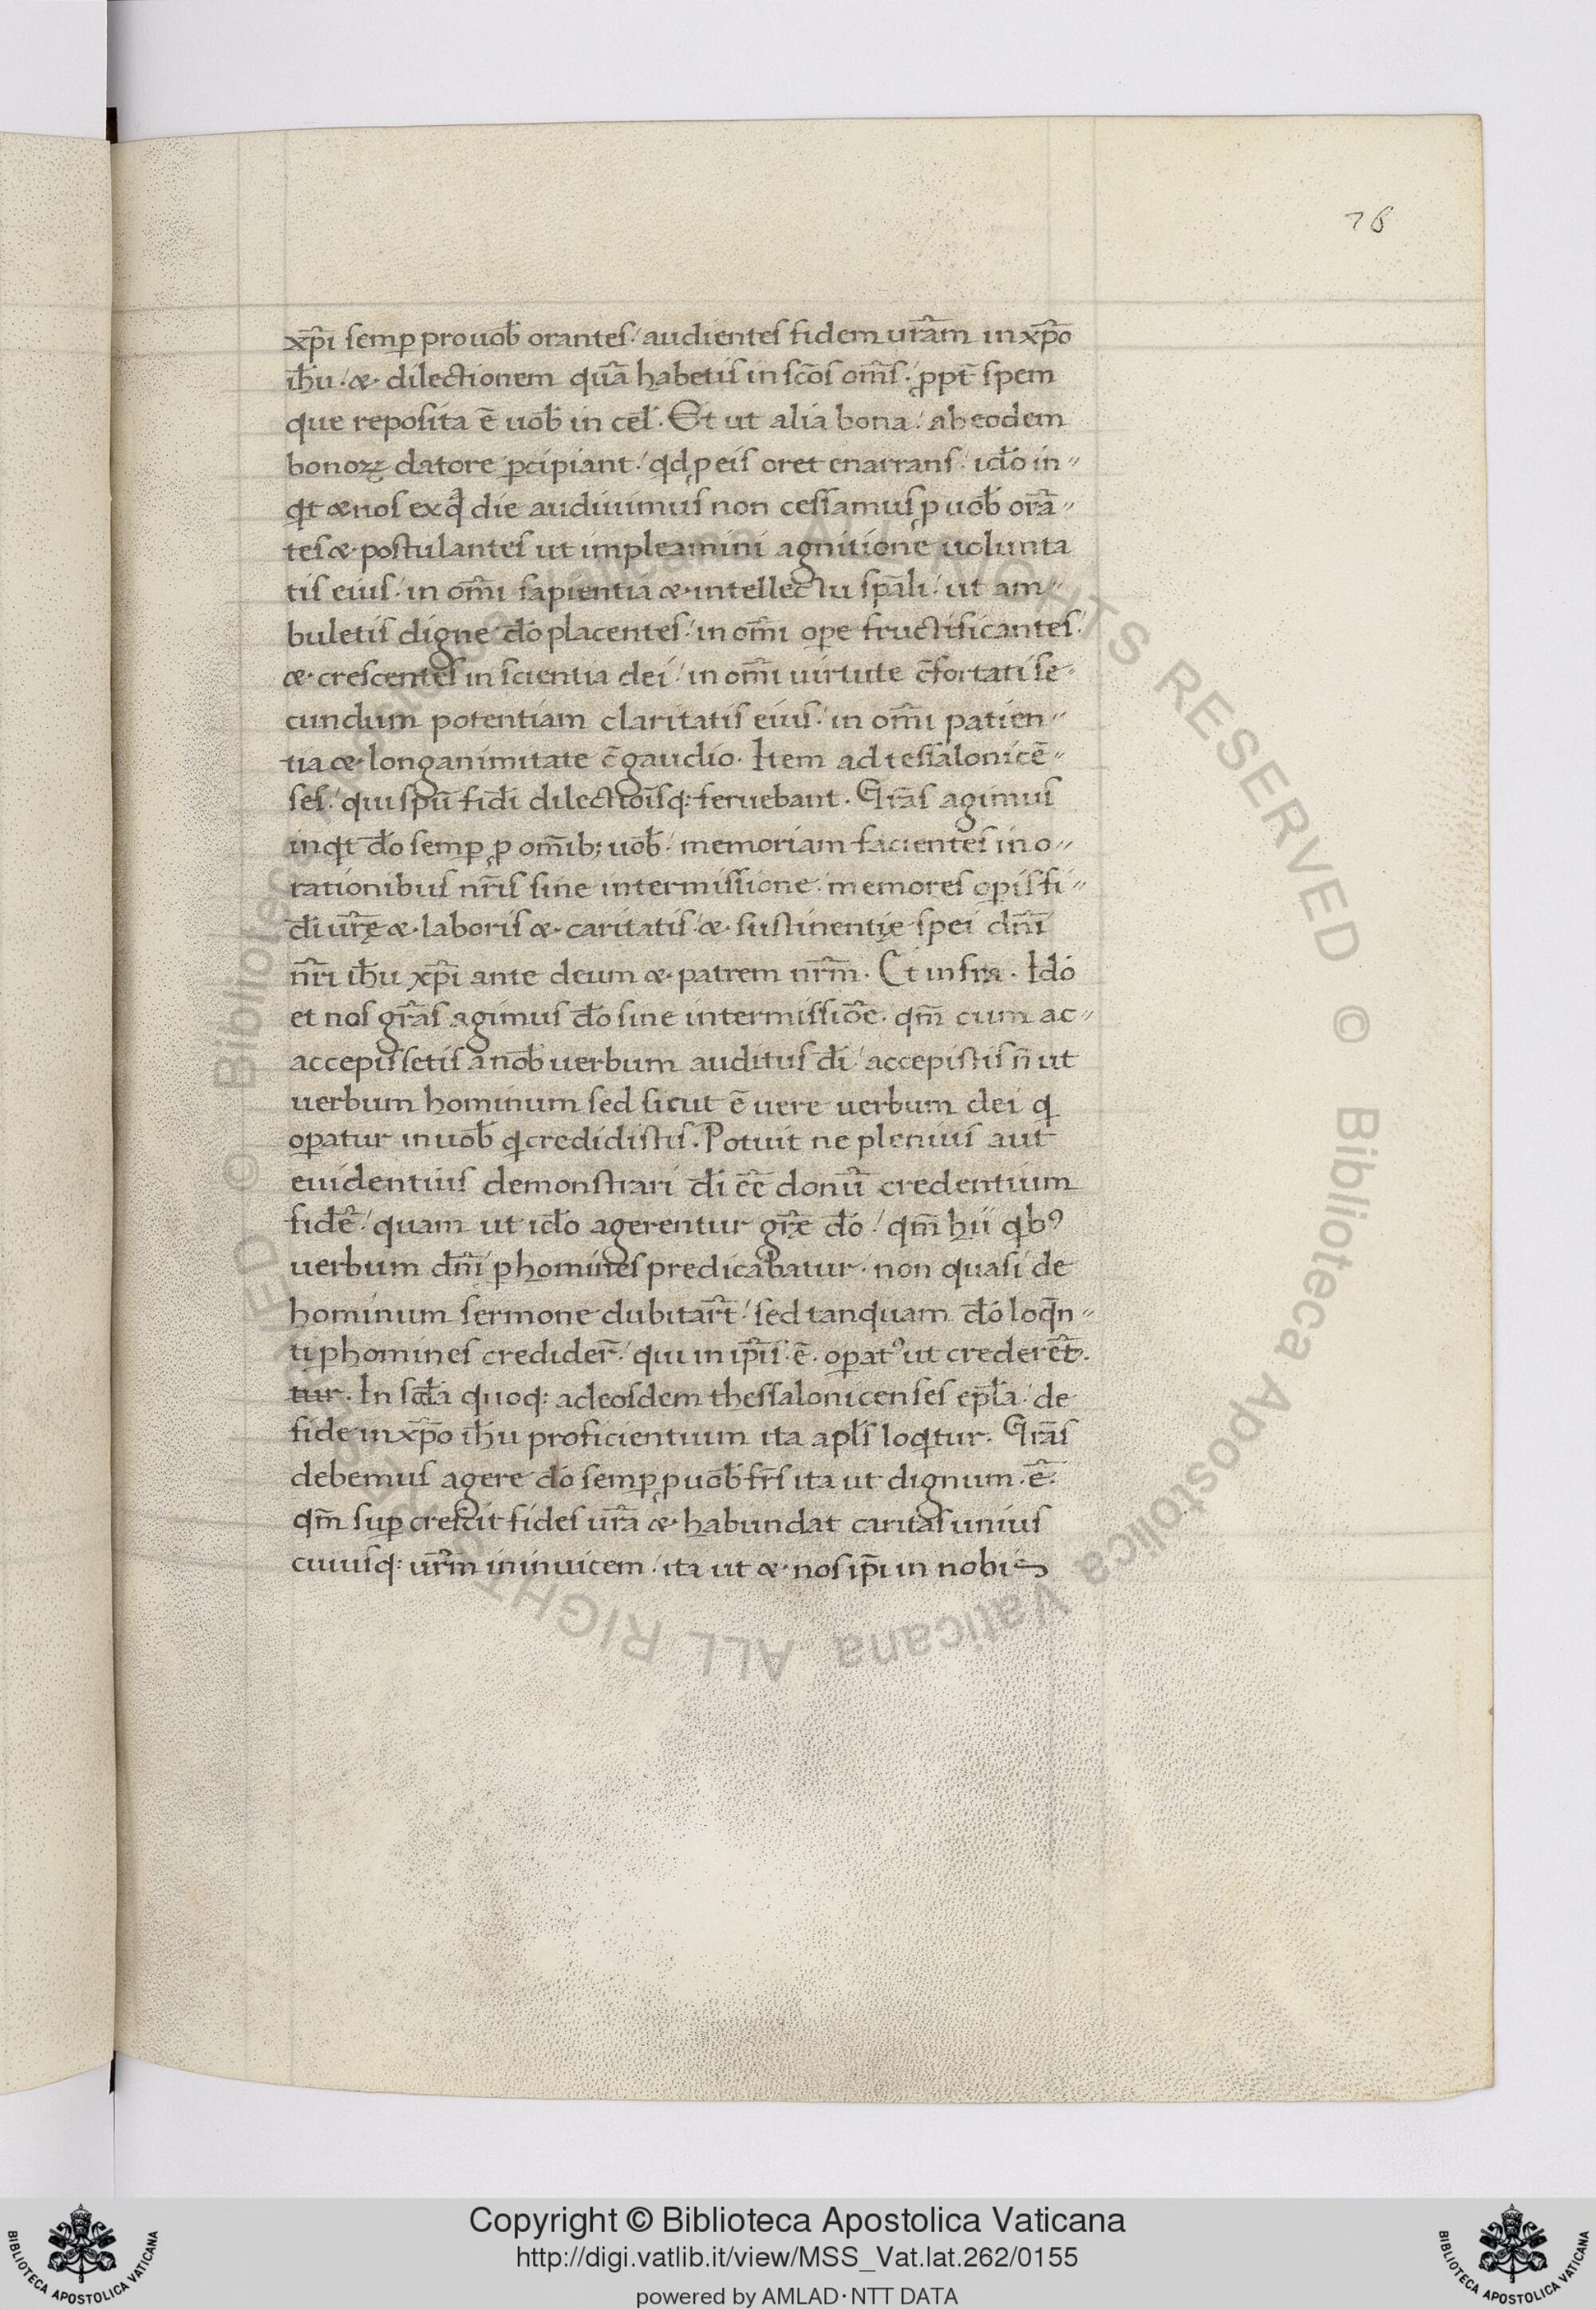 78
xp̄i semꝑ pro uob̄ orantes / audientes fidem ur̄am in xp̄o
ih̄u · & · dilectionem quā habetis in sc̄os om̄s · ꝓpt̄ spem
que reposita ē uob̄ in cel̄ · Et ut alia bona / ab eodem
bonoꝝ datore ꝑcipiant / qd ꝓ eis oret enarrans / id̄o in〃
qt & nos ex q die audiuimus non cessamus ꝓ uob̄ orā〃
tes & · postulantes ut impleamini agnitione uolunta
tis eius / in om̄i sapientia & · intellectu sp̄ali / ut am〃
buletis digne d̄o placentes / in om̄i oꝑe fructificantes ·
& · crescentes in scientia dei / in om̄i uirtute c̄fortati se〃
cundum potentiam claritatis eius / in om̄i patien〃
tia & · longanimitate c̄ gaudio · Item ad tessalonicē〃
ses / qui spū fid̄i dilectiois̄q: feruebant · Grās agimus
inqt d̄o semꝑ ꝓ om̄ib; uob̄ / memoriam facientes in o〃
rationibus nr̄is sine intermissione / memores oꝑis fi〃
d̄i ur̄ę & · laboris & · caritatis / & · sustinentię spei dn̄i
nr̄i ih̄u xp̄i ante deum & · patrem nr̄m · Et infra · Id̄o
et nos gr̄as agimus d̄o sine intermissiōe · qm̄ cum ac〃
accepissetis a nob̄ uerbum auditus d̄i / accepistis n̄ ut
uerbum hominum sed sicut ē uere uerbum dei q
oꝑatur in uob̄ q credidistis · Potuit ne plenius aut
euidentius demonstrari d̄i eē donū credentium
fid̄ē / quam ut id̄o agerentur gr̄e d̄o / qm̄ hii qbꝰ
uerbum dn̄i ꝑ homines predicabatur · non quasi de
hominum sermone dubitar̄t / sed tanquam d̄o loqn̄〃
ti ꝑ homines credider̄ / qui in ip̄is · ē · oꝑatꝰ ut crederēt ·
tur · In sc̄d̄a quoq: ad eosdem thessalonicenses ep̄la / de
fide in xp̄o ih̄u proficientium ita apl̄s loqtur · Grās
debemus agere d̄o semꝑ ꝓ uob̄ fr̄s ita ut dignum · ē ·
qm̄ suꝑ crescit fides ur̄a & · habundat caritas unius
cuiusq: ur̄m in inuicem / ita ut & · nos ip̄i in nobis
© Biblioteca Apostolica Vaticana ALL RIGHTS RESERVED
Copyright © Biblioteca Apostolica Vaticana
http://digi.vatlib.it/view/MSS_Vat.lat.262/0155
powered by AMLAD·NTT DATA
BIBLIOTECA APOSTOLICA VATICANA
BIBLIOTECA APOSTOLICA VATICANA